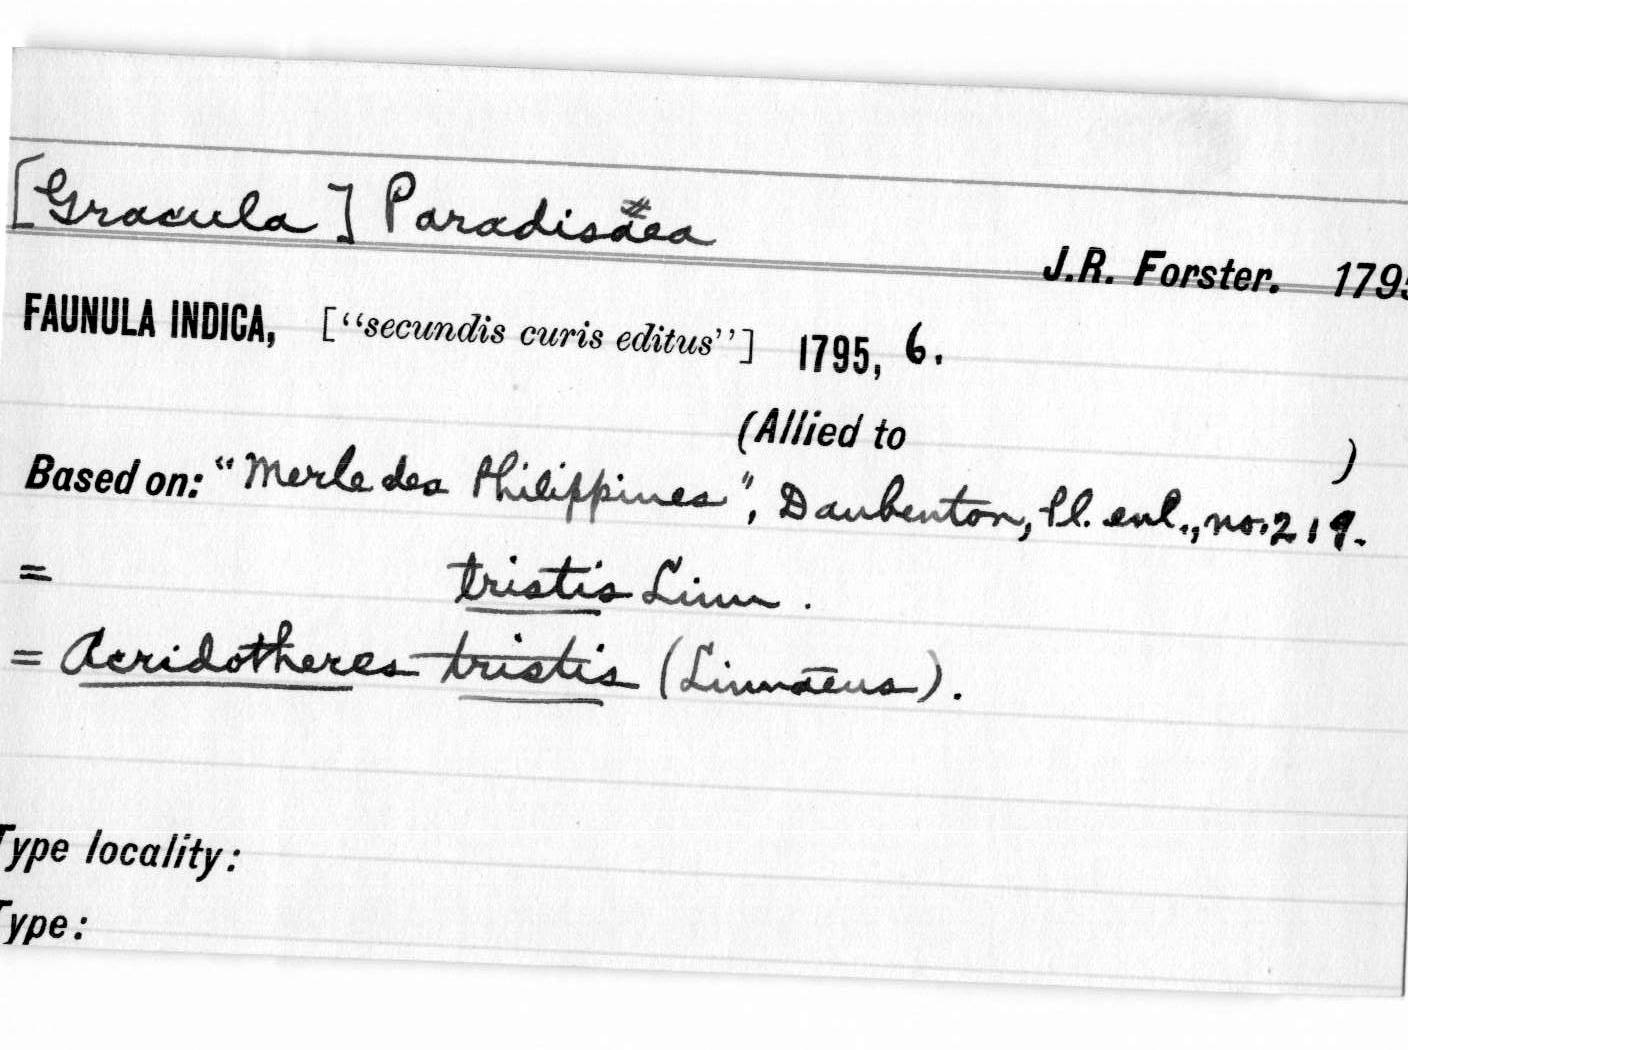 [Gracula] Paradisæa
J.R. Forster. 1795
FAUNULA INDICA, ["secundis curis editus"] 1795, 6.
(Allied to )
Based on: "Merle des Philippines", Daubenton, Pl. enl., no. 219.
= tristis Linn.
= Acridotheres tristis (Linnaeus).
Type locality:
Type: